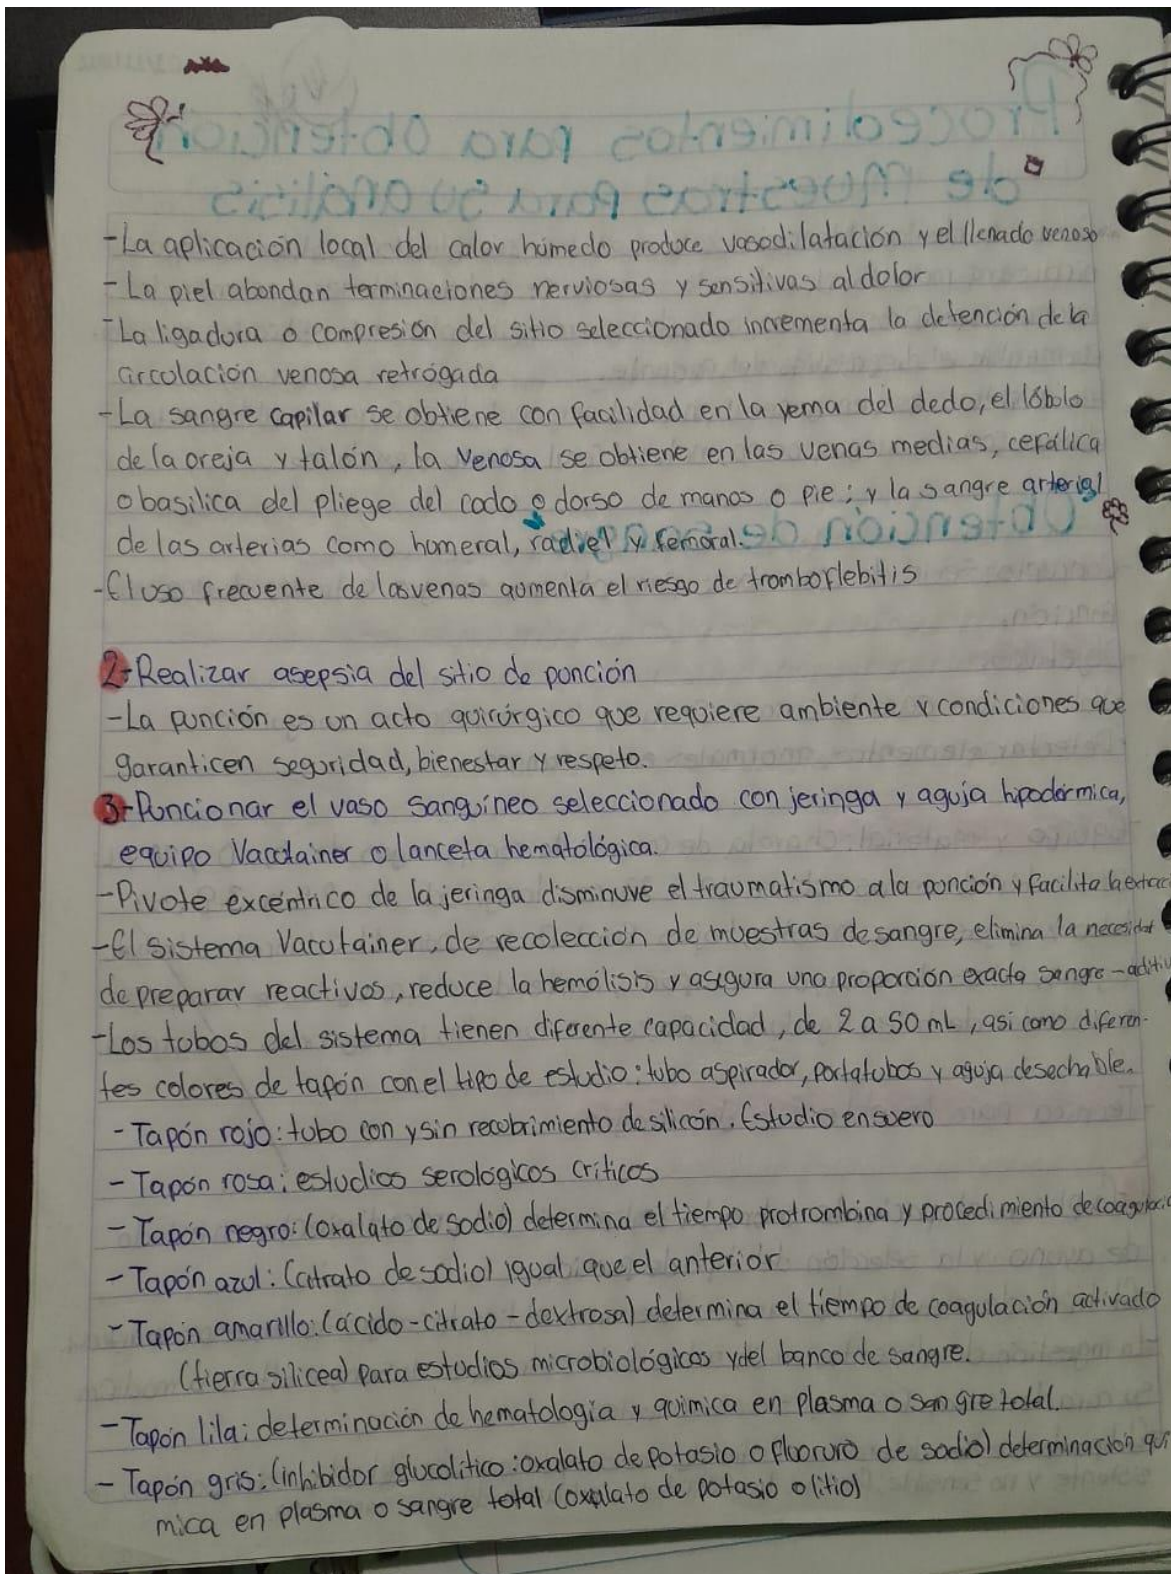 -La aplicación local del calor húmedo produce vasodilatación y el llenado venoso
-La piel abondan terminaciones nerviosas y sensitivas al dolor
-La ligadura o compresión del sitio seleccionado incrementa la detención de la
circulación venosa retrógada
-La sangre capilar se obtiene con facilidad en la yema del dedo, el lóbulo
de la oreja y talón, la venosa se obtiene en las venas medias, cefálica
o basilica del pliege del codo o dorso de manos o pie; y la sangre arterial
de las arterias como humeral, radiel y femoral.
-El uso frecuente de las venas aumenta el riesgo de tromboflebitis
2-Realizar asepsia del sitio de punción
-La punción es un acto quirúrgico que requiere ambiente y condiciones que
garanticen seguridad, bienestar y respeto.
3-Puncionar el vaso sanguíneo seleccionado con jeringa y aguja hipodérmica,
equipo Vacutainer o lanceta hematológica.
-Pivote excéntrico de la jeringa disminuye el traumatismo a la punción y facilita la
-El sistema Vacutainer, de recolección de muestras de sangre, elimina la necesidad
de preparar reactivos, reduce la hemólisis y asegura una proporción exacta sangre-aditiv
-Los tubos del sistema tienen diferente capacidad, de 2 a 50 mL, asi como diferen-
tes colores de tapón con el tipo de estudio: tubo aspirador, portatubos y aguja desechable.
-Tapón rojo: tubo con y sin recubrimiento de silicón. Estudio en suero
-Tapón rosa: estudios serológicos críticos
-Tapón negro: (oxalato de sodio) determina el tiempo protrombina y procedimiento de
-Tapón azul: (citrato de sodio) igual que el anterior
-Tapón amarillo: (ácido-citrato-dextrosa) determina el tiempo de coagulación activado
(tierra silicea) para estudios microbiológicos y del banco de sangre.
-Tapón lila: determinación de hematología y química en plasma o sangre total.
-Tapón gris: (inhibidor glucolítico: oxalato de potasio o fluoruro de sodio) determinación quí
mica en plasma o sangre total (oxalato de potasio o litio)